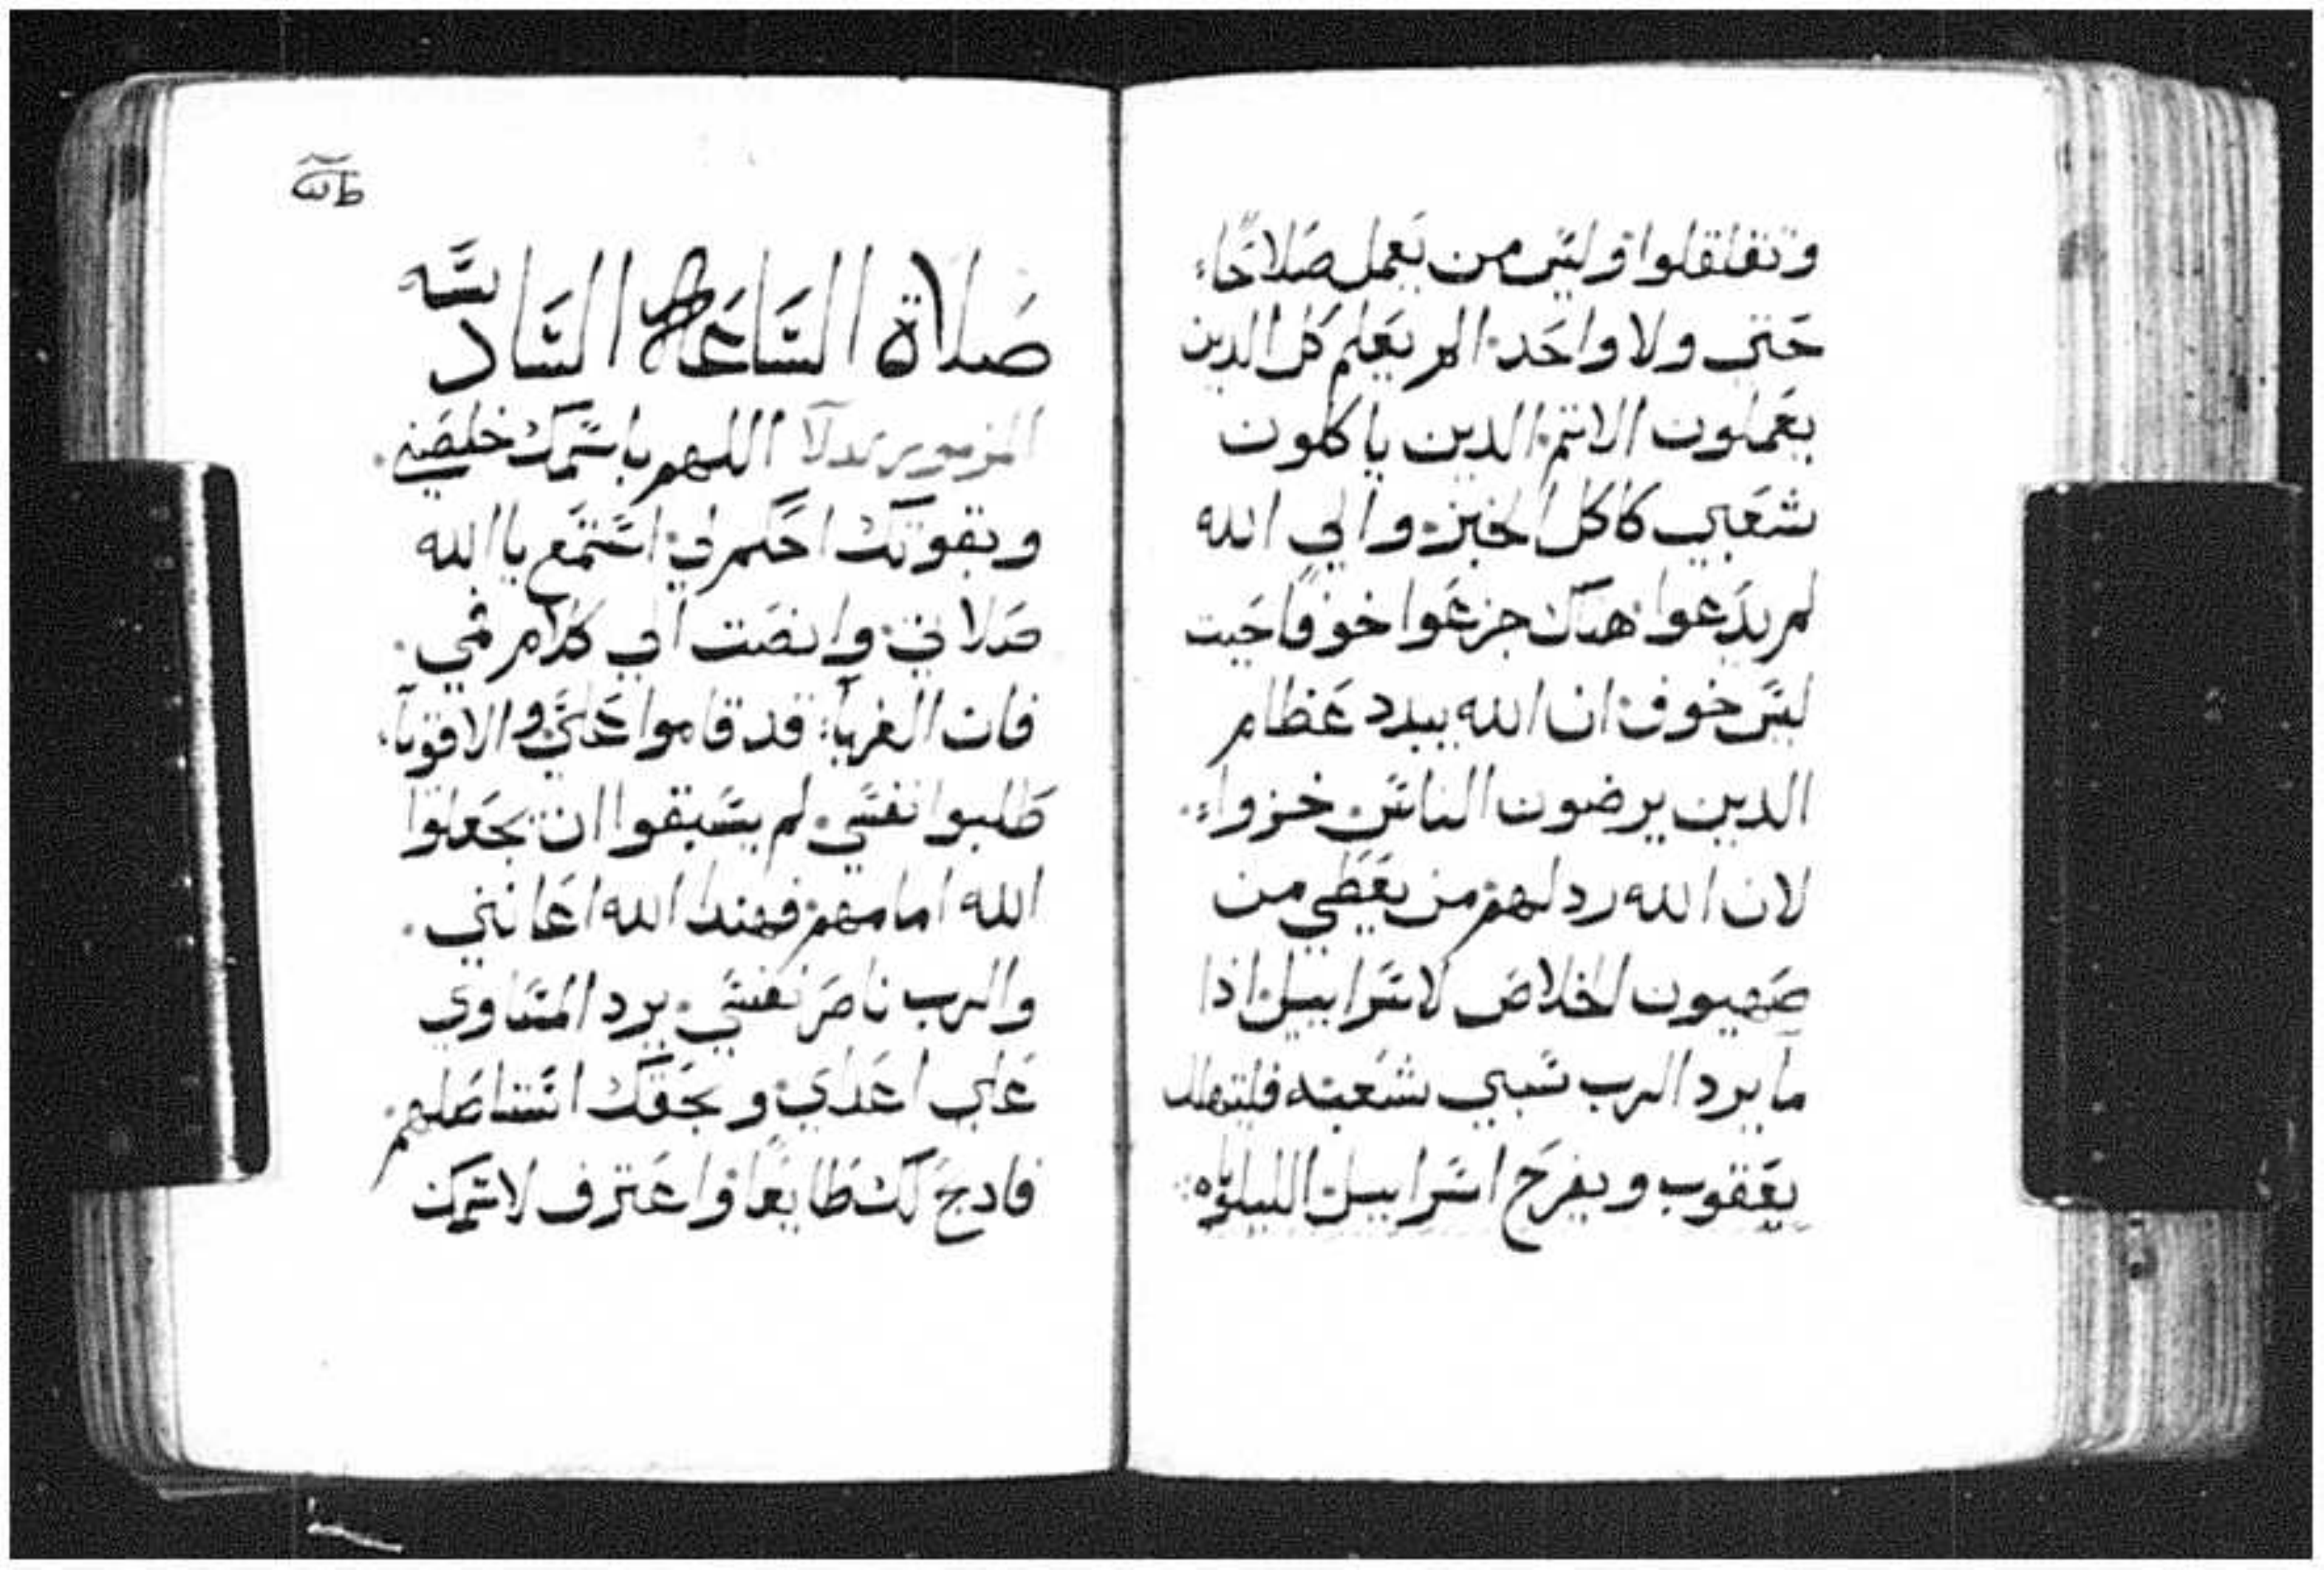 وتقلقلوا وليس من يعمل صلاحًا
حتي ولا واحد الم يعلم كل الدين
يعملون الاتم الدين ياكلون
شعبي كاكل الخبز والي الله
لم يدعوا هناك جزعوا خوفا حيت
ليس خوف ان الله يبدد عظام
الدين يرضون الناس خزواء
لان الله ردلهم من يعطي من
صهيون الخلاص لاسراييل اذا
ما يرد الرب سبي شعبه فليتهلل
يعقوب ويفرح اسراييل الليلوياه
صلاة الساعة السادسه
المزمور اللهم باسمك خلصني
وبقوتك احكم لي استمع يا الله
صلاتي وانصت الي كلام في
فان الغرباء قد قاموا علي والاقويا
طلبوا نفسي لم يسبقوا ان يجعلوا
الله امامهم فهندا الله اعانني
والرب ناصر نفسي يرد المساوي
علي اعداي وبحقك استاصلهم
فادبح لك طايعًا واعترف لاسمك